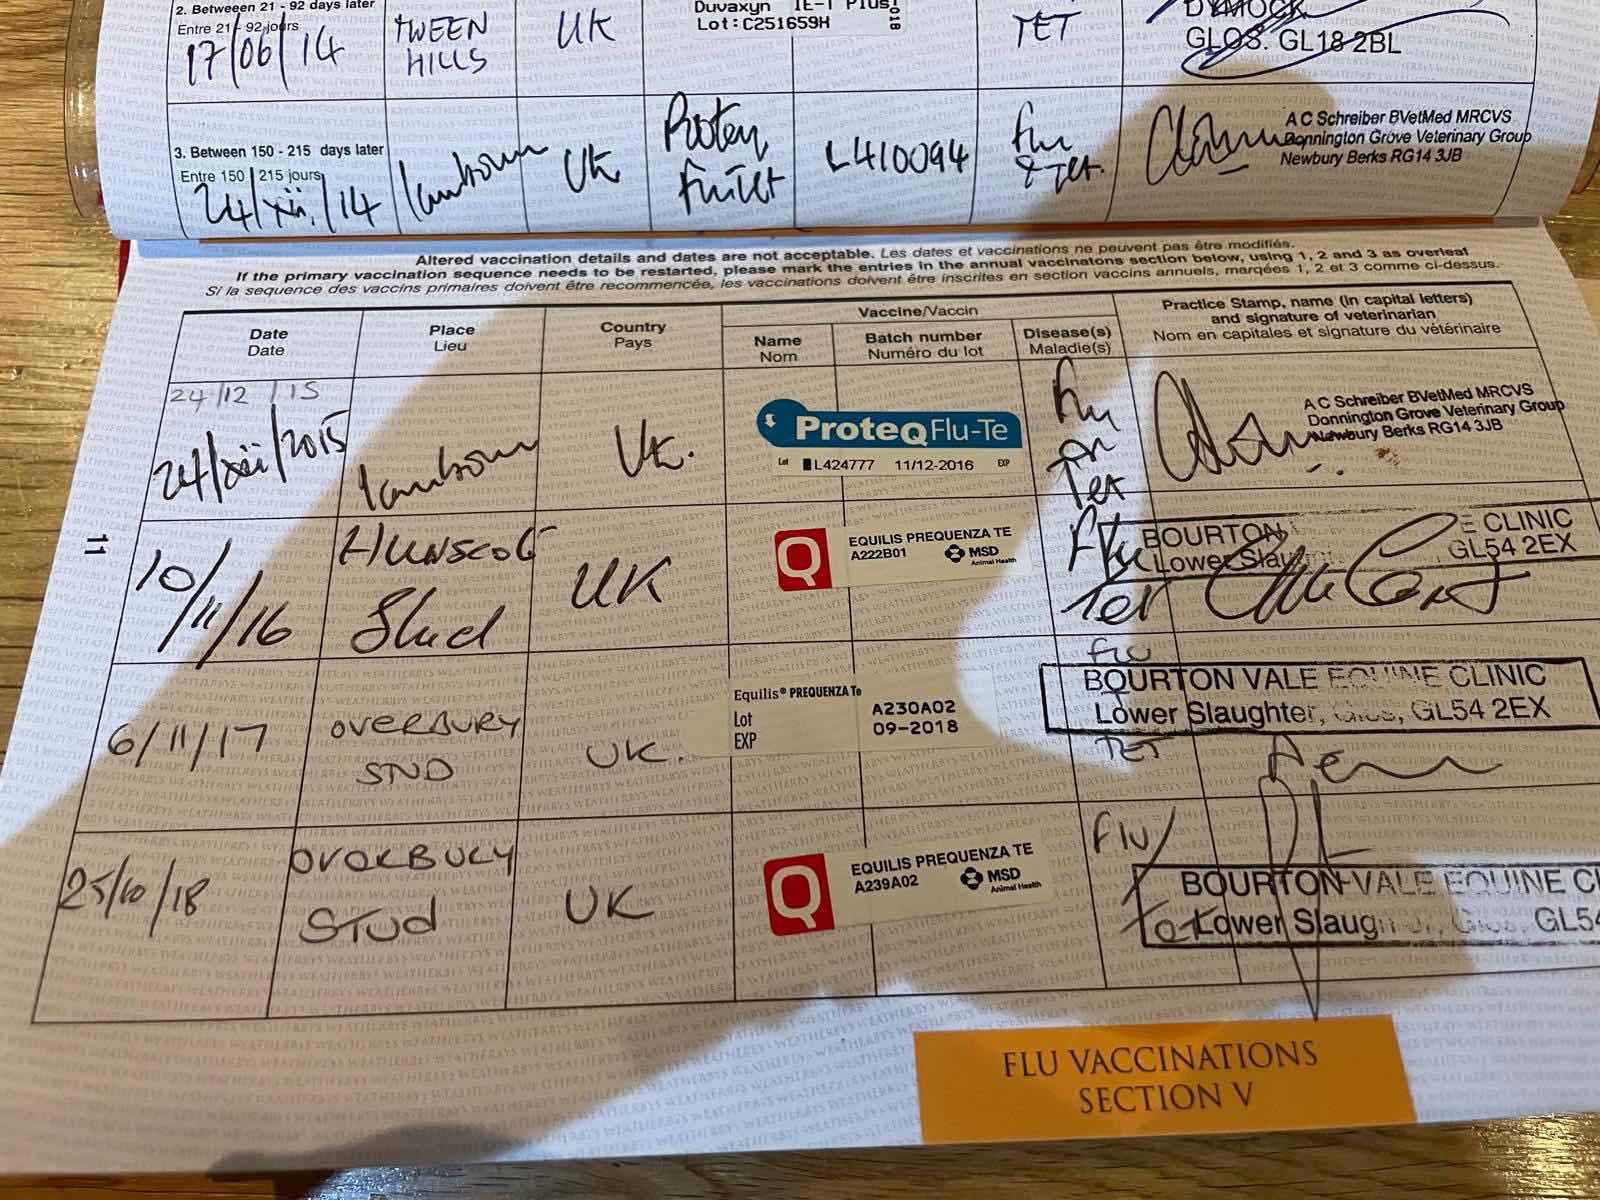 2. Betweeen 21 - 92 days later
Entre 21 - 92 jours
17/06/14
TWEEN
HILLS
UK
Duvaxyn IE-T Plus
Lot: C251659H
018
TET
DYMOCK
GLOS. GL18 2BL
3. Between 150 - 215 days later
Entre 150 215 jours
24/xii/14
Lambourn
UK
Proteq
FluTet
L410094
Flu
& Tet.
A C Schreiber BVetMed MRCVS
Donnington Grove Veterinary Group
Newbury Berks RG14 3JB
Altered vaccination details and dates are not acceptable. Les dates et vaccinations ne peuvent pas être modifiés.
If the primary vaccination sequence needs to be restarted, please mark the entries in the annual vaccinatons section below, using 1, 2 and 3 as overleaf
Si la sequence des vaccins primaires doivent être recommencée, les vaccinations doivent être inscrites en section vaccins annuels, marqées 1, 2 et 3 comme ci-dessus.
Date
Date
Place
Lieu
Country
Pays
Vaccine/Vaccin
Name
Nom
Batch number
Numéro du lot
Disease(s)
Maladie(s)
Practice Stamp, name (in capital letters)
and signature of veterinarian
Nom en capitales et signature du vétérinaire
24/12/15
24/xii/2015
Lambourn
UK.
ProteQ Flu-Te
Lot L424777 11/12-2016 EXP
Flu
Tet
A C Schreiber BVetMed MRCVS
Donnington Grove Veterinary Group
Newbury Berks RG14 3JB
11
10/11/16
HUNSCOTE
Stud
UK
Q
EQUILIS PREQUENZA TE
A222B01 MSD
Animal Health
Flu
Tet
BOURTON E CLINIC
Lower Slau GL54 2EX
6/11/17
OVERBURY
STUD
UK.
Equilis® PREQUENZA Te
Lot A230A02
EXP 09-2018
FLU
TET
BOURTON VALE EQUINE CLINIC
Lower Slaughter, Glos, GL54 2EX
25/10/18
OVERBURY
STUD
UK
Q
EQUILIS PREQUENZA TE
A239A02 MSD
Animal Health
Flu/
Tet
BOURTON VALE EQUINE CL
Lower Slaughter, Glos, GL54
FLU VACCINATIONS
SECTION V